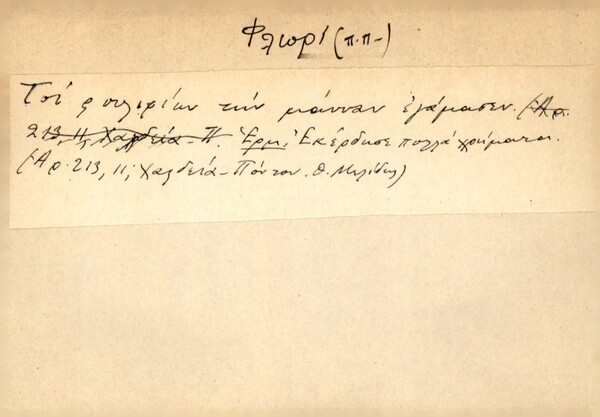 Φλιωρί (π.π.)
Τοῦ φουλιρίων τὴν μάνναν ἐγάμασεν. (Ἀρ.
213, 11, Χαλδεία - Π. Ἑρμ. Ἐκέρδισε πολλά χρήματα.
(Ἀρ. 213, 11, Χαλδεία - Πόντου. Θ. Μελίδης)